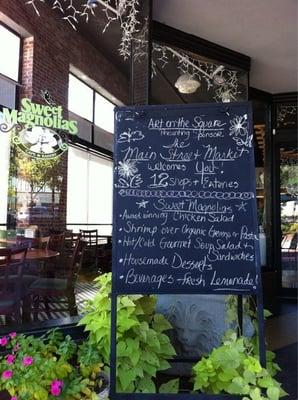 Sweet
Magnolias
Art on the Square
Presenting Sponsor
The
Main Street Market
welcomes You!
12 Shops + Eateries
Sweet Magnolias
• Award winning Chicken Salad
• Shrimp over Organic Greens or Pasta
• Hot/Cold Gourmet Soup Salad + Sandwiches
• Housemade Desserts
• Beverages - Fresh Lemonade!